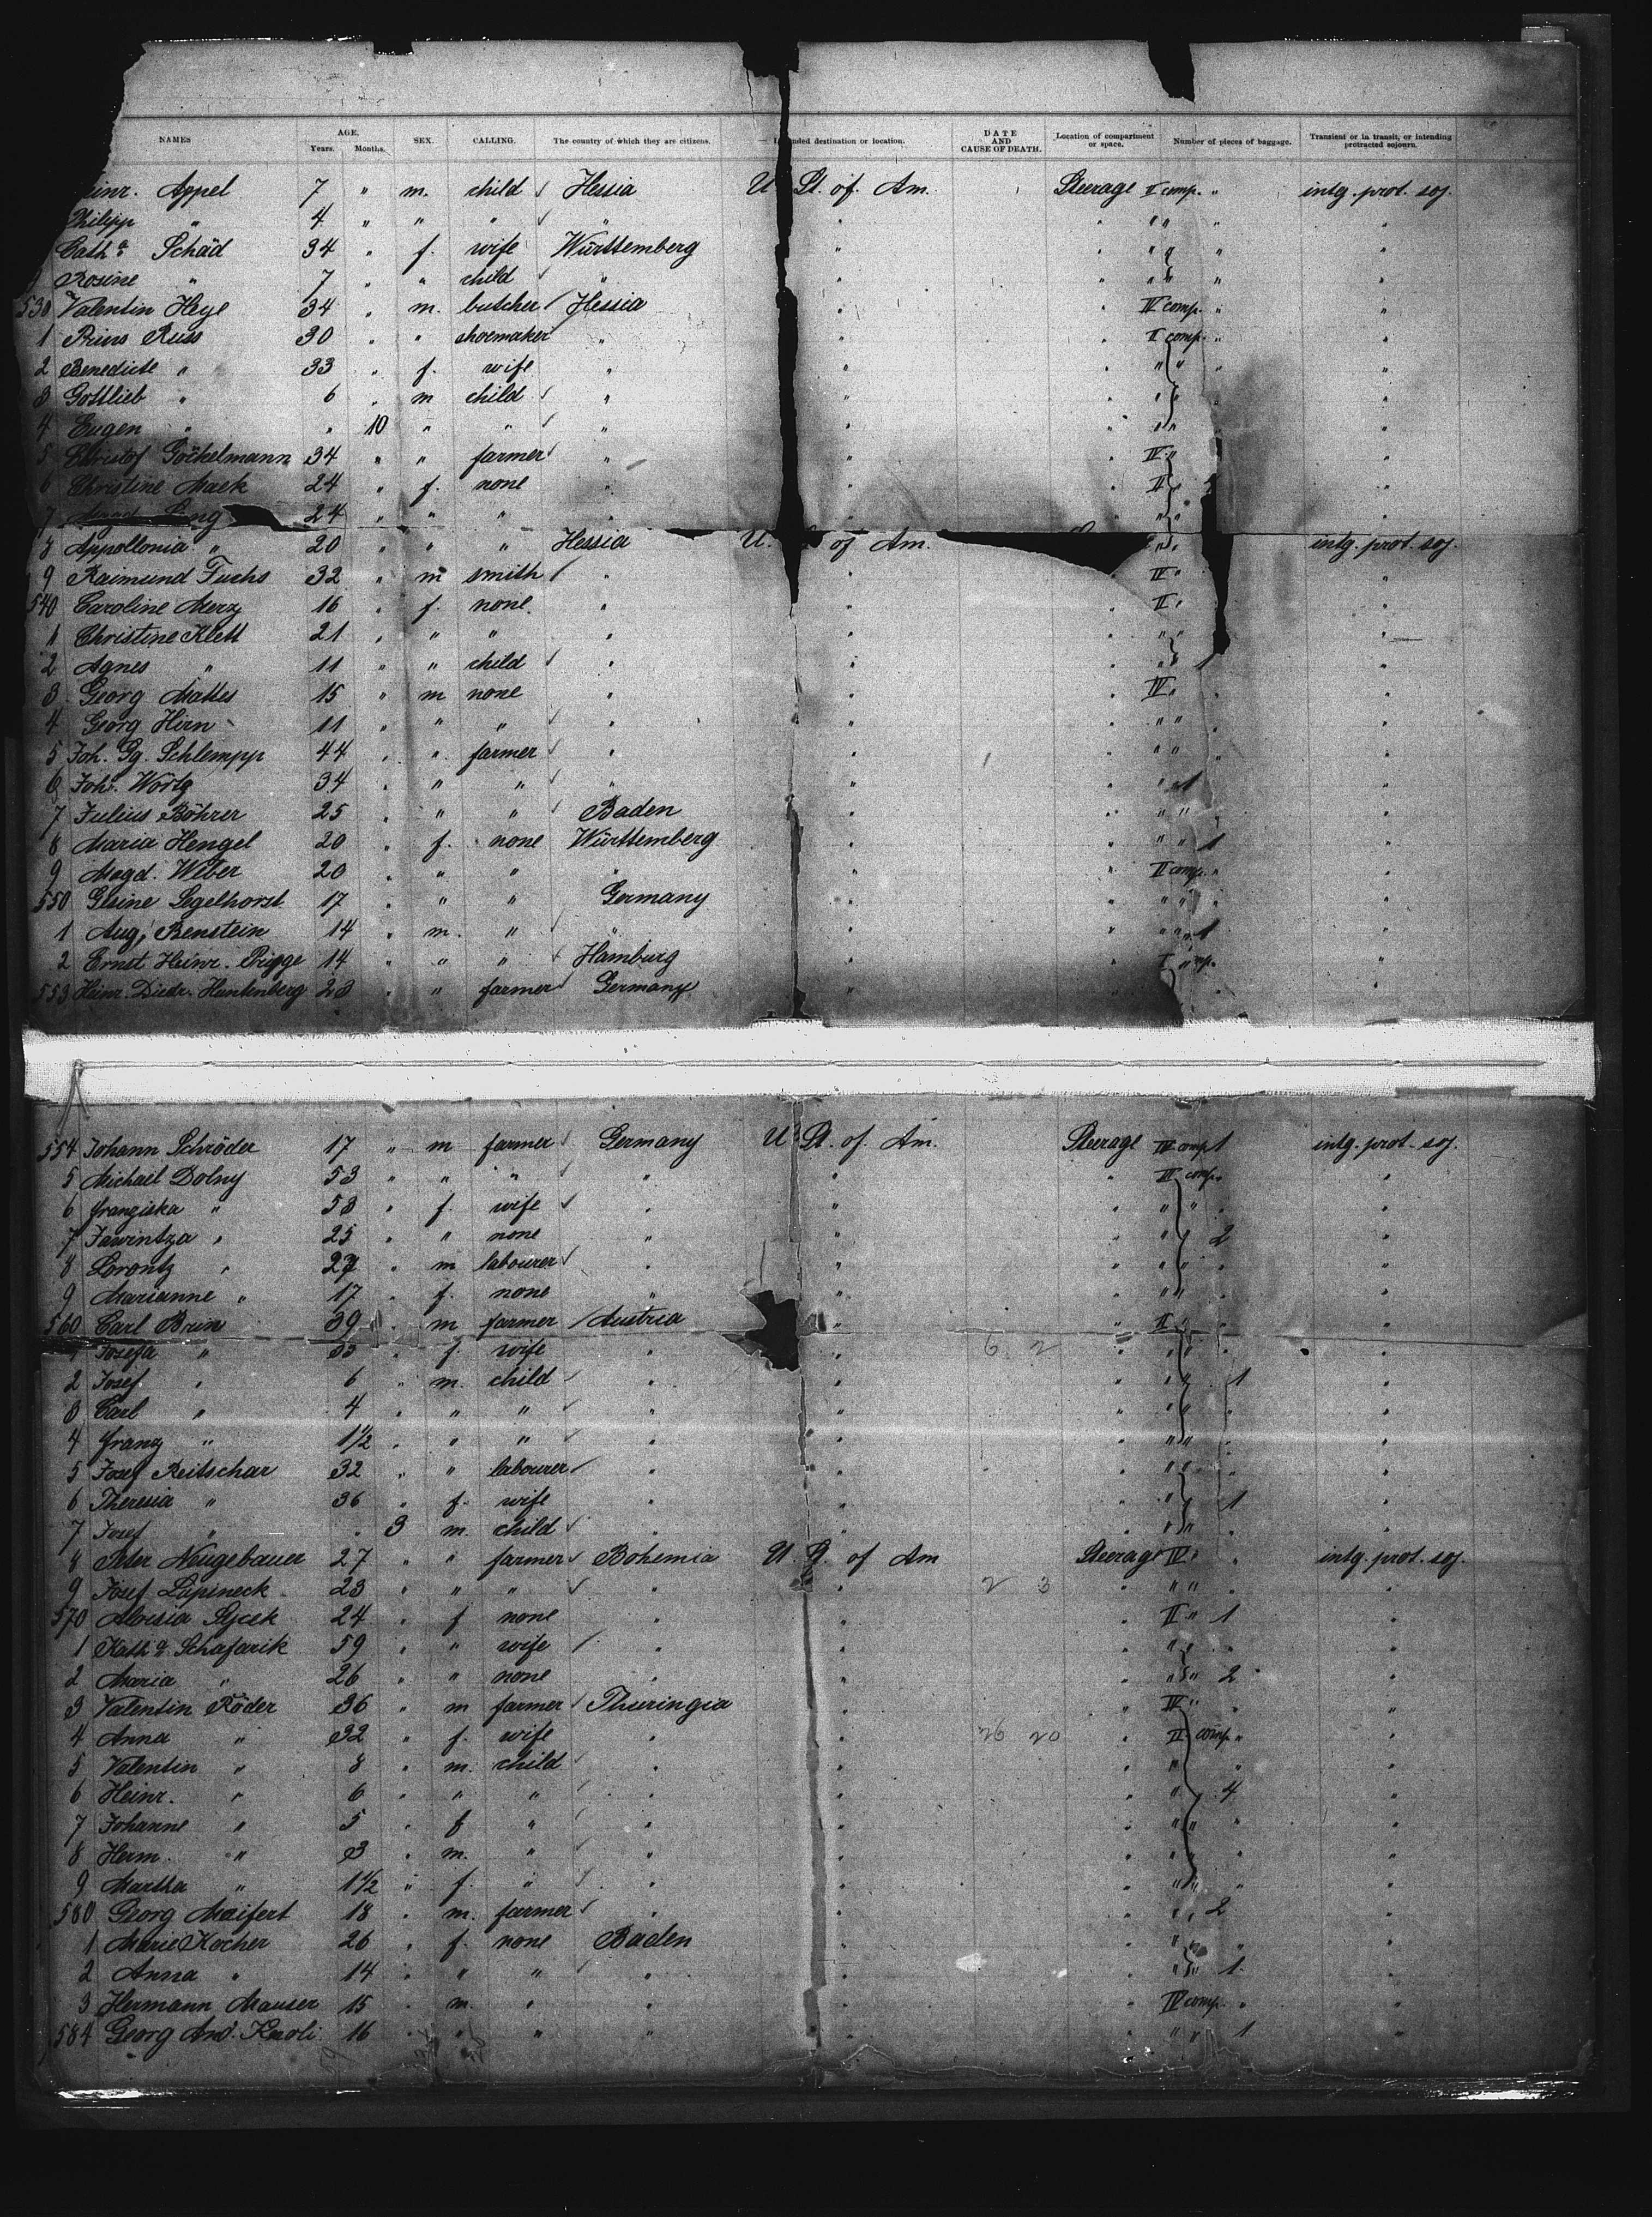 NAMES AGE. Years. Months. SEX. CALLING. The country of which they are citizens. destination or location. DATE AND CAUSE OF DEATH. Location of compartment or space. Number of pieces of baggage. Transient or in transit, or intending protracted sojourn.
Appel 7 " m. child Hessia U. St. of Am. Steerage II comp. " intg. prot. soj.
Philipp " 4 " " " " " " " " " "
Cath.a Schäd 34 " f. wife Württemberg " " " " "
Rosine " 7 " " child " " " " " "
530 Valentin Heye 34 " m. butcher Hessia " " IV comp. " "
1 Prins Russ 30 " " shoemaker " " " II comp. " "
2 Benedicte " 33 " f. wife " " " " " " "
3 Gottlieb " 6 " m child " " " " " "
4 Eugen " " 10 " " " " " " " "
5 Christof Göckelmann 34 " " farmer " " " IV " "
6 Christine Mack 24 " f. none " " " II " "
7 24 " " " " " " " " "
8 Appollonia " 20 " " " Hessia U. of Am. " " intg. prot. soj.
9 Raimund Fuchs 32 " m smith " " " IV " "
540 Caroline Merz 16 " f. none " " " II " "
1 Christine Klett 21 " " " " " " " " "
2 Agnes " 11 " " child " " " " " 1 "
3 Georg Mattes 15 " m none " " " IV " " "
4 Georg Hirn 11 " " " " " " " " " "
5 Joh. Gg. Schlempp 44 " " farmer " " " " " " "
6 Joh. Wörtz 34 " " " " " " " 1 "
7 Julius Böhrer 25 " " " Baden " " " " "
8 Maria Hengel 20 " f. none Württemberg " " " " 1 "
9 Magd. Weber 20 " " " " " " II comp. " "
550 Gesine Segelhorst 17 " " " Germany " " " " " "
1 Aug. Benstein 14 " m. " " " " " " 1 "
2 Ernst Heinr. Prigge 14 " " " Hamburg " " I comp. "
553 Heinr. Diedr. Huntenberg 23 " " farmer Germany " " "
554 Johann Schröder 17 " m farmer Germany U. St. of Am. Steerage IV comp. 1 intg. prot. soj.
5 Michael Dolny 53 " " " " " " III comp. "
6 Franziska " 58 " f. wife " " " " " " "
7 Jawintza " 25 " " none " " " " 2 "
8 Lorontz " 27 " m labourer " " " " " " "
9 Marianne " 17 " f. none " " " " " "
560 Carl Brun 39 " m farmer Austria " " II " " "
1 Josefa " 33 " f. wife " " 6 2 " " " " "
2 Josef " 6 " m. child " " " " " 1 "
3 Carl " 4 " " " " " " " " " "
4 Franz " 1 1/2 " " " " " " " " " "
5 Josef Reitschar 32 " " labourer " " " " " " "
6 Theresia " 36 " f. wife " " " " 1 "
7 Josef " " 3 m. child " " " " " " "
8 Peter Neugebauer 27 " " farmer Bohemia U. St. of Am Steerage IV " " intg. prot. soj.
9 Josef Lapineck 23 " " " " " 2 3 " " " " "
570 Aloisia 24 " f none " " " II " 1 "
1 Kath.a Schafarik 59 " " wife " " " " " " "
2 Maria " 26 " " none " " " " " 2 "
3 Valentin Röder 36 " m farmer Thuringia " " IV " " "
4 Anna " 32 " f. wife " " 26 20 " II comp. " "
5 Valentin " 8 " m. child " " " " " "
6 Heinr. " 6 " " " " " " " 4 "
7 Johanne " 5 " f " " " " " " " "
8 Herm. " 3 " m. " " " " " " " "
9 Martha " 1 1/2 " f. " " " " " " " "
580 Georg Maifert 18 " m. farmer " " " " " 2 "
1 Marie Kocher 26 " f. none Baden " " " " " "
2 Anna " 14 " " " " " " " " 1 "
3 Hermann Mauser 15 " m. " " " " IV comp. " "
584 Georg And. Knoli 16 " " " " " " " " 1 "